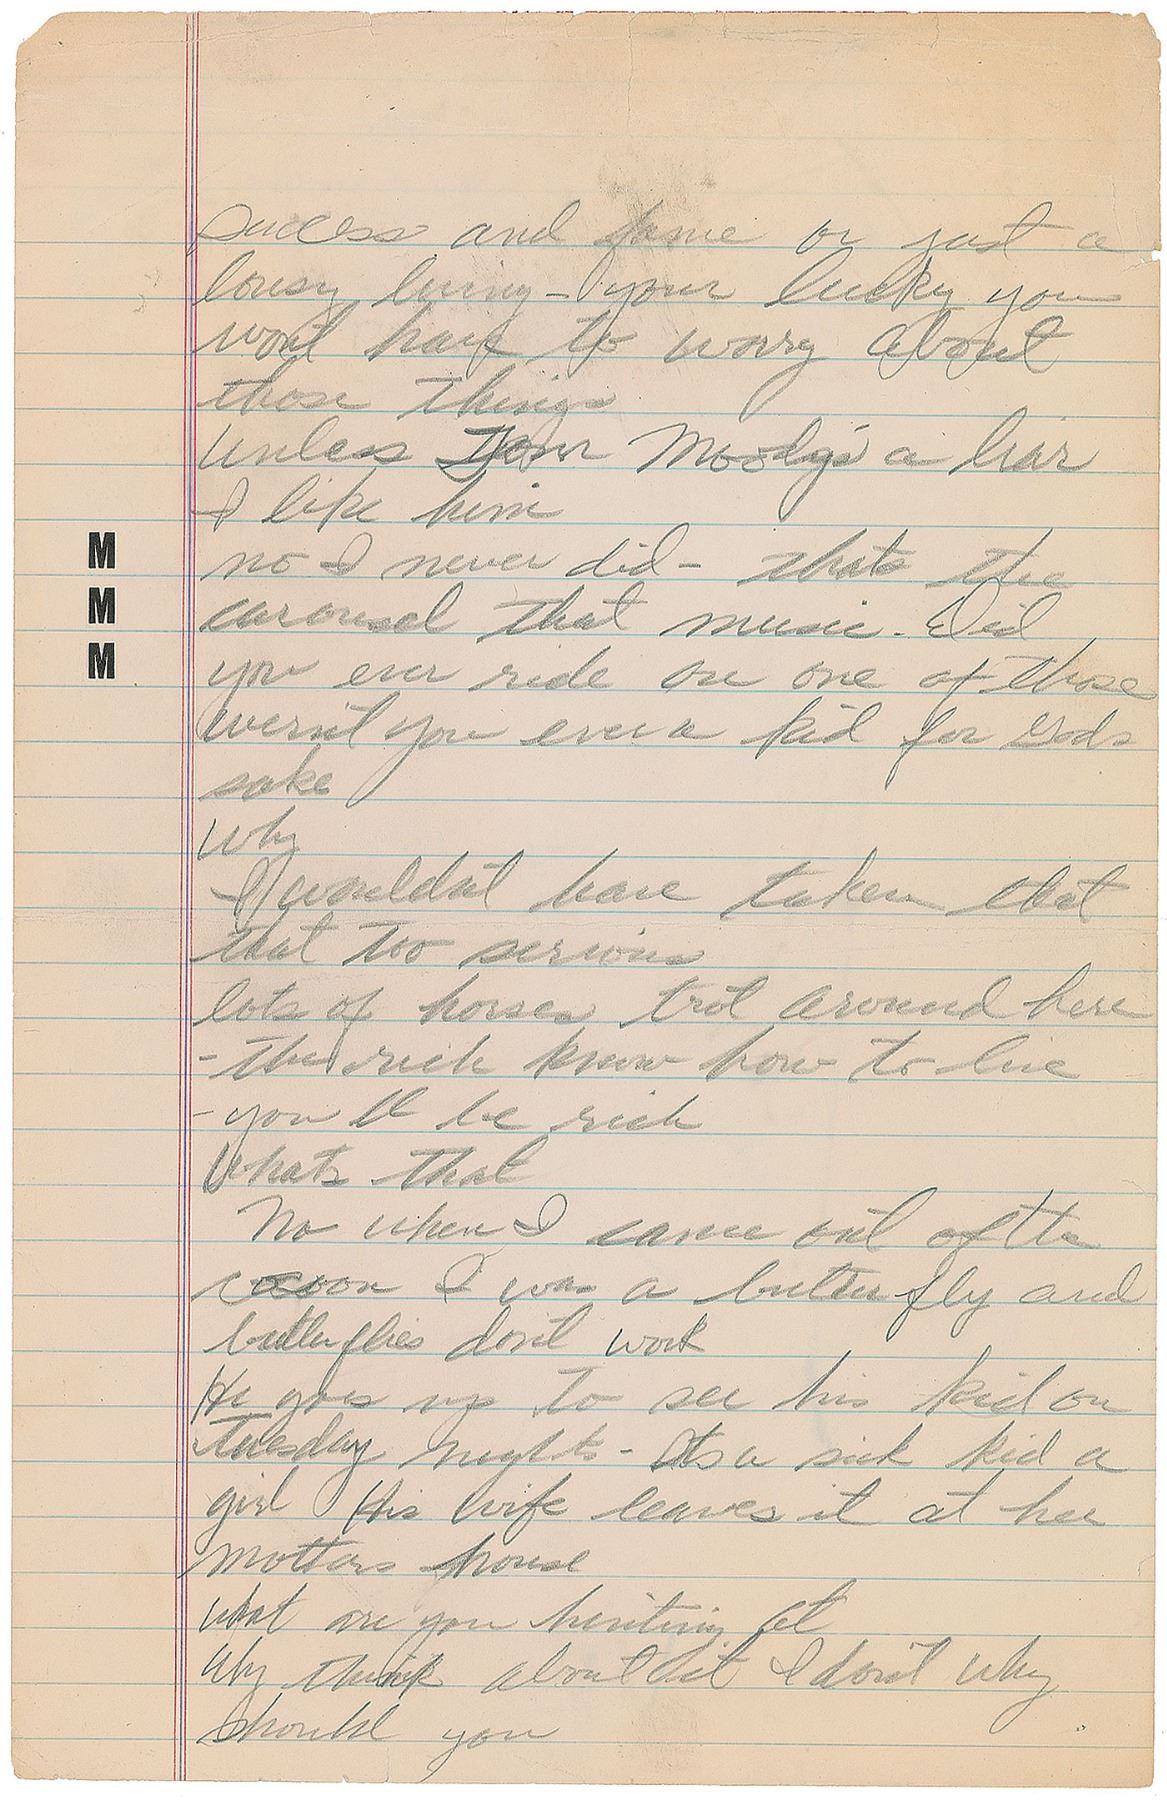 success and fame or just a
lousy living - your lucky you
wont have to worry about
those things
unless Moody's a liar
I like him
no I never did - thats the
M
carousel that music. Did
M
you ever ride on one of those
M
wernt you ever a kid for Gods
sake
why
I wouldnt have taken that
that too serious
lots of horses trot around here
- the rich know how to live
- you ll be rich
Whats that
No when I came out of the
cocoon I was a butterfly and
butterflies dont work
He goes up to see his kid on
Tuesday nights - Its a sick kid a
girl His wife leaves it at her
mothers house
what are you hinting at
Why think about it I dont why
should you